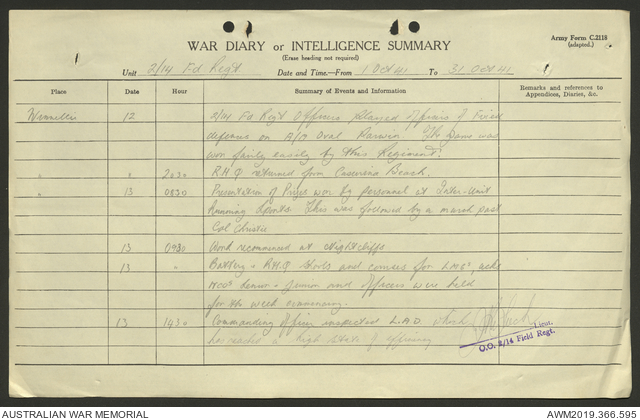 Army Form C.2118
(adapted.)
WAR DIARY or INTELLIGENCE SUMMARY
(Erase heading not required)
Unit 2/14 Fd Regt Date and Time.—From 1 Oct 41 To 31 Oct 41
Place Date Hour Summary of Events and Information Remarks and references to Appendices, Diaries, &c.
Winnellie 12 2/14 Fd Regt Officers played officers of Fixed
defences on Oval Darwin. The game was
won fairly easily by this Regiment.
" " 2030 R.H.Q returned from Casuarina Beach.
" 13 0830 Presentation of Prizes won by personnel at Inter-Unit
Running Sports. This was followed by a march past
Col Christie
13 0930 Work recommenced at Nightcliffe
13 " Battery & R.H.Q and for LMG's,
NCOs senior & junior and officers were held
for the week commencing.
13 1430 Commanding Officer inspected L.A.D. which
has reached a high state of efficiency
Lieut.
O.O. 2/14 Field Regt.
AUSTRALIAN WAR MEMORIAL AWM2019.366.595